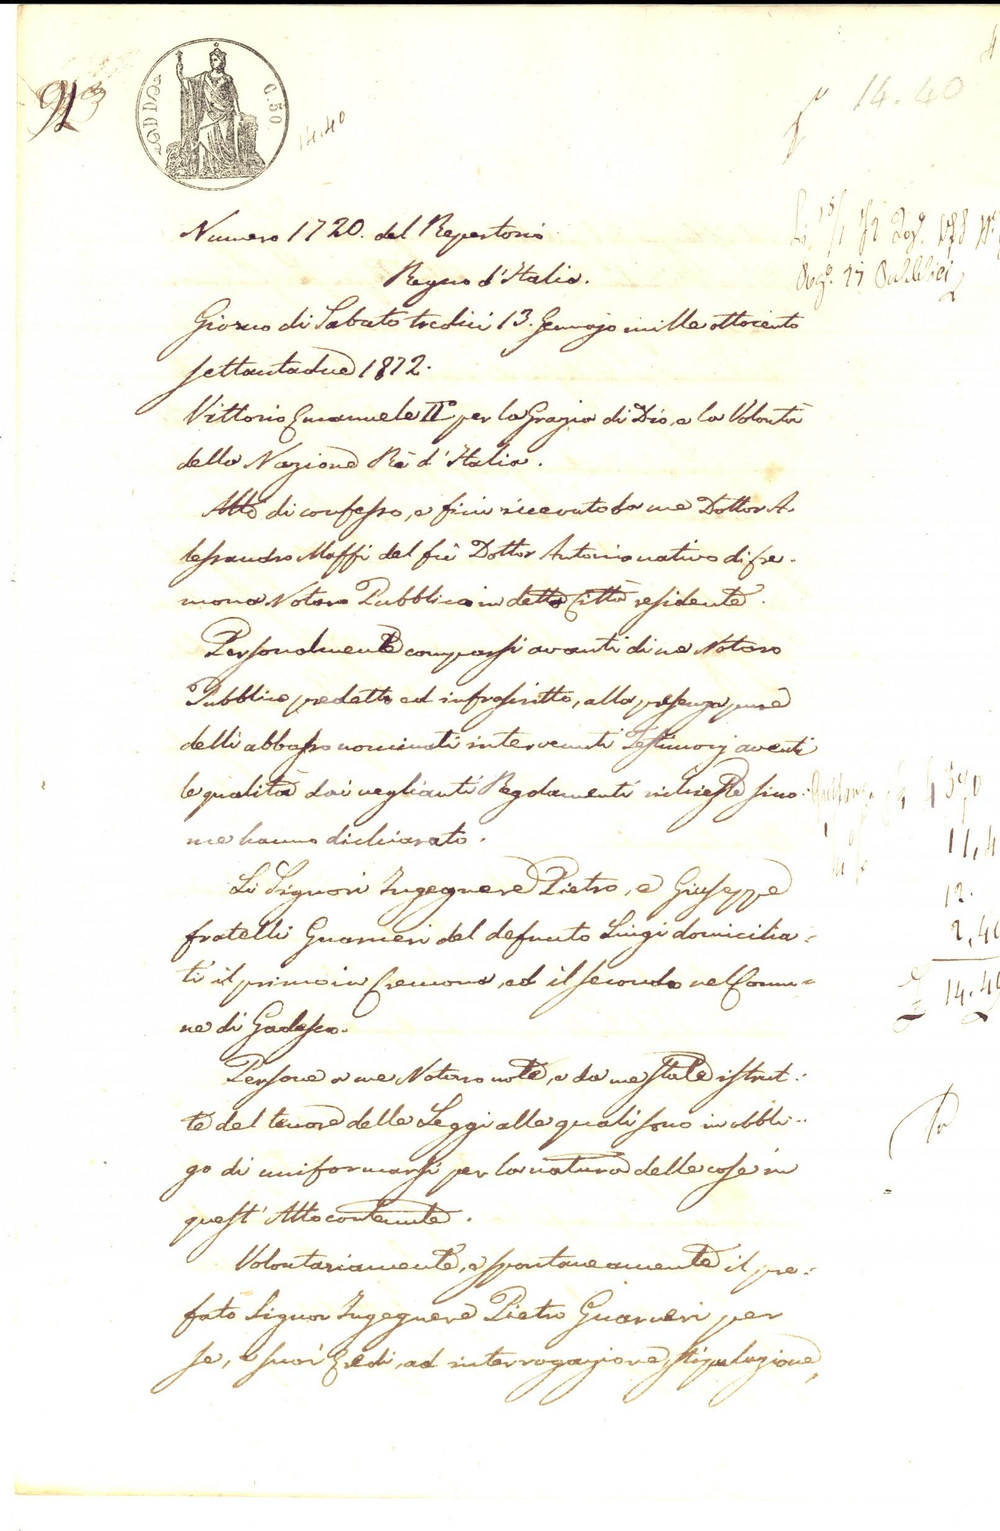 C. 50
14.40
14.40
Numero 1720. del Repertorio
Regno d'Italia.
Giorno di Sabato tredici 13. Gennajo mille ottocento
settantadue 1872.
Vittorio Emanuele II° per la Grazia di Dio, e la Volontà
della Nazione Rè d'Italia.
Atto di confesso, e fini ricevuto da me Dottor A-
lessandro Maffi del fù Dottor Antonio nativo di Cre-
mona Notaro Pubblico in detta Città residente.
Personalmente comparsi avanti di me Notaro
Pubblico predetto ed infrascritto, alla presenza pure
delli abbasso nominati intervenuti Testimonj aventi
le qualità dai veglianti Regolamenti richieste sico-
me hanno dichiarato.
Li Signori Ingegnere Pietro, e Giuseppe
fratelli Guarneri del defunto Luigi domicilia-
ti il primo in Cremona, ed il secondo nel Comu-
ne di Gadesco.
Persone a me Notaro note, e da me state istrut-
te del tenore delle Leggi alle quali sono in obbli-
go di uniformarsi per la natura delle cose in
quest'Atto contenute.
Volontariamente, e spontaneamente il pre-
fato Signor Ingegnere Pietro Guarneri per
se, e suoi Eredi, ad interrogazione, stipulazione,
11,4
12.
2,40
14.40